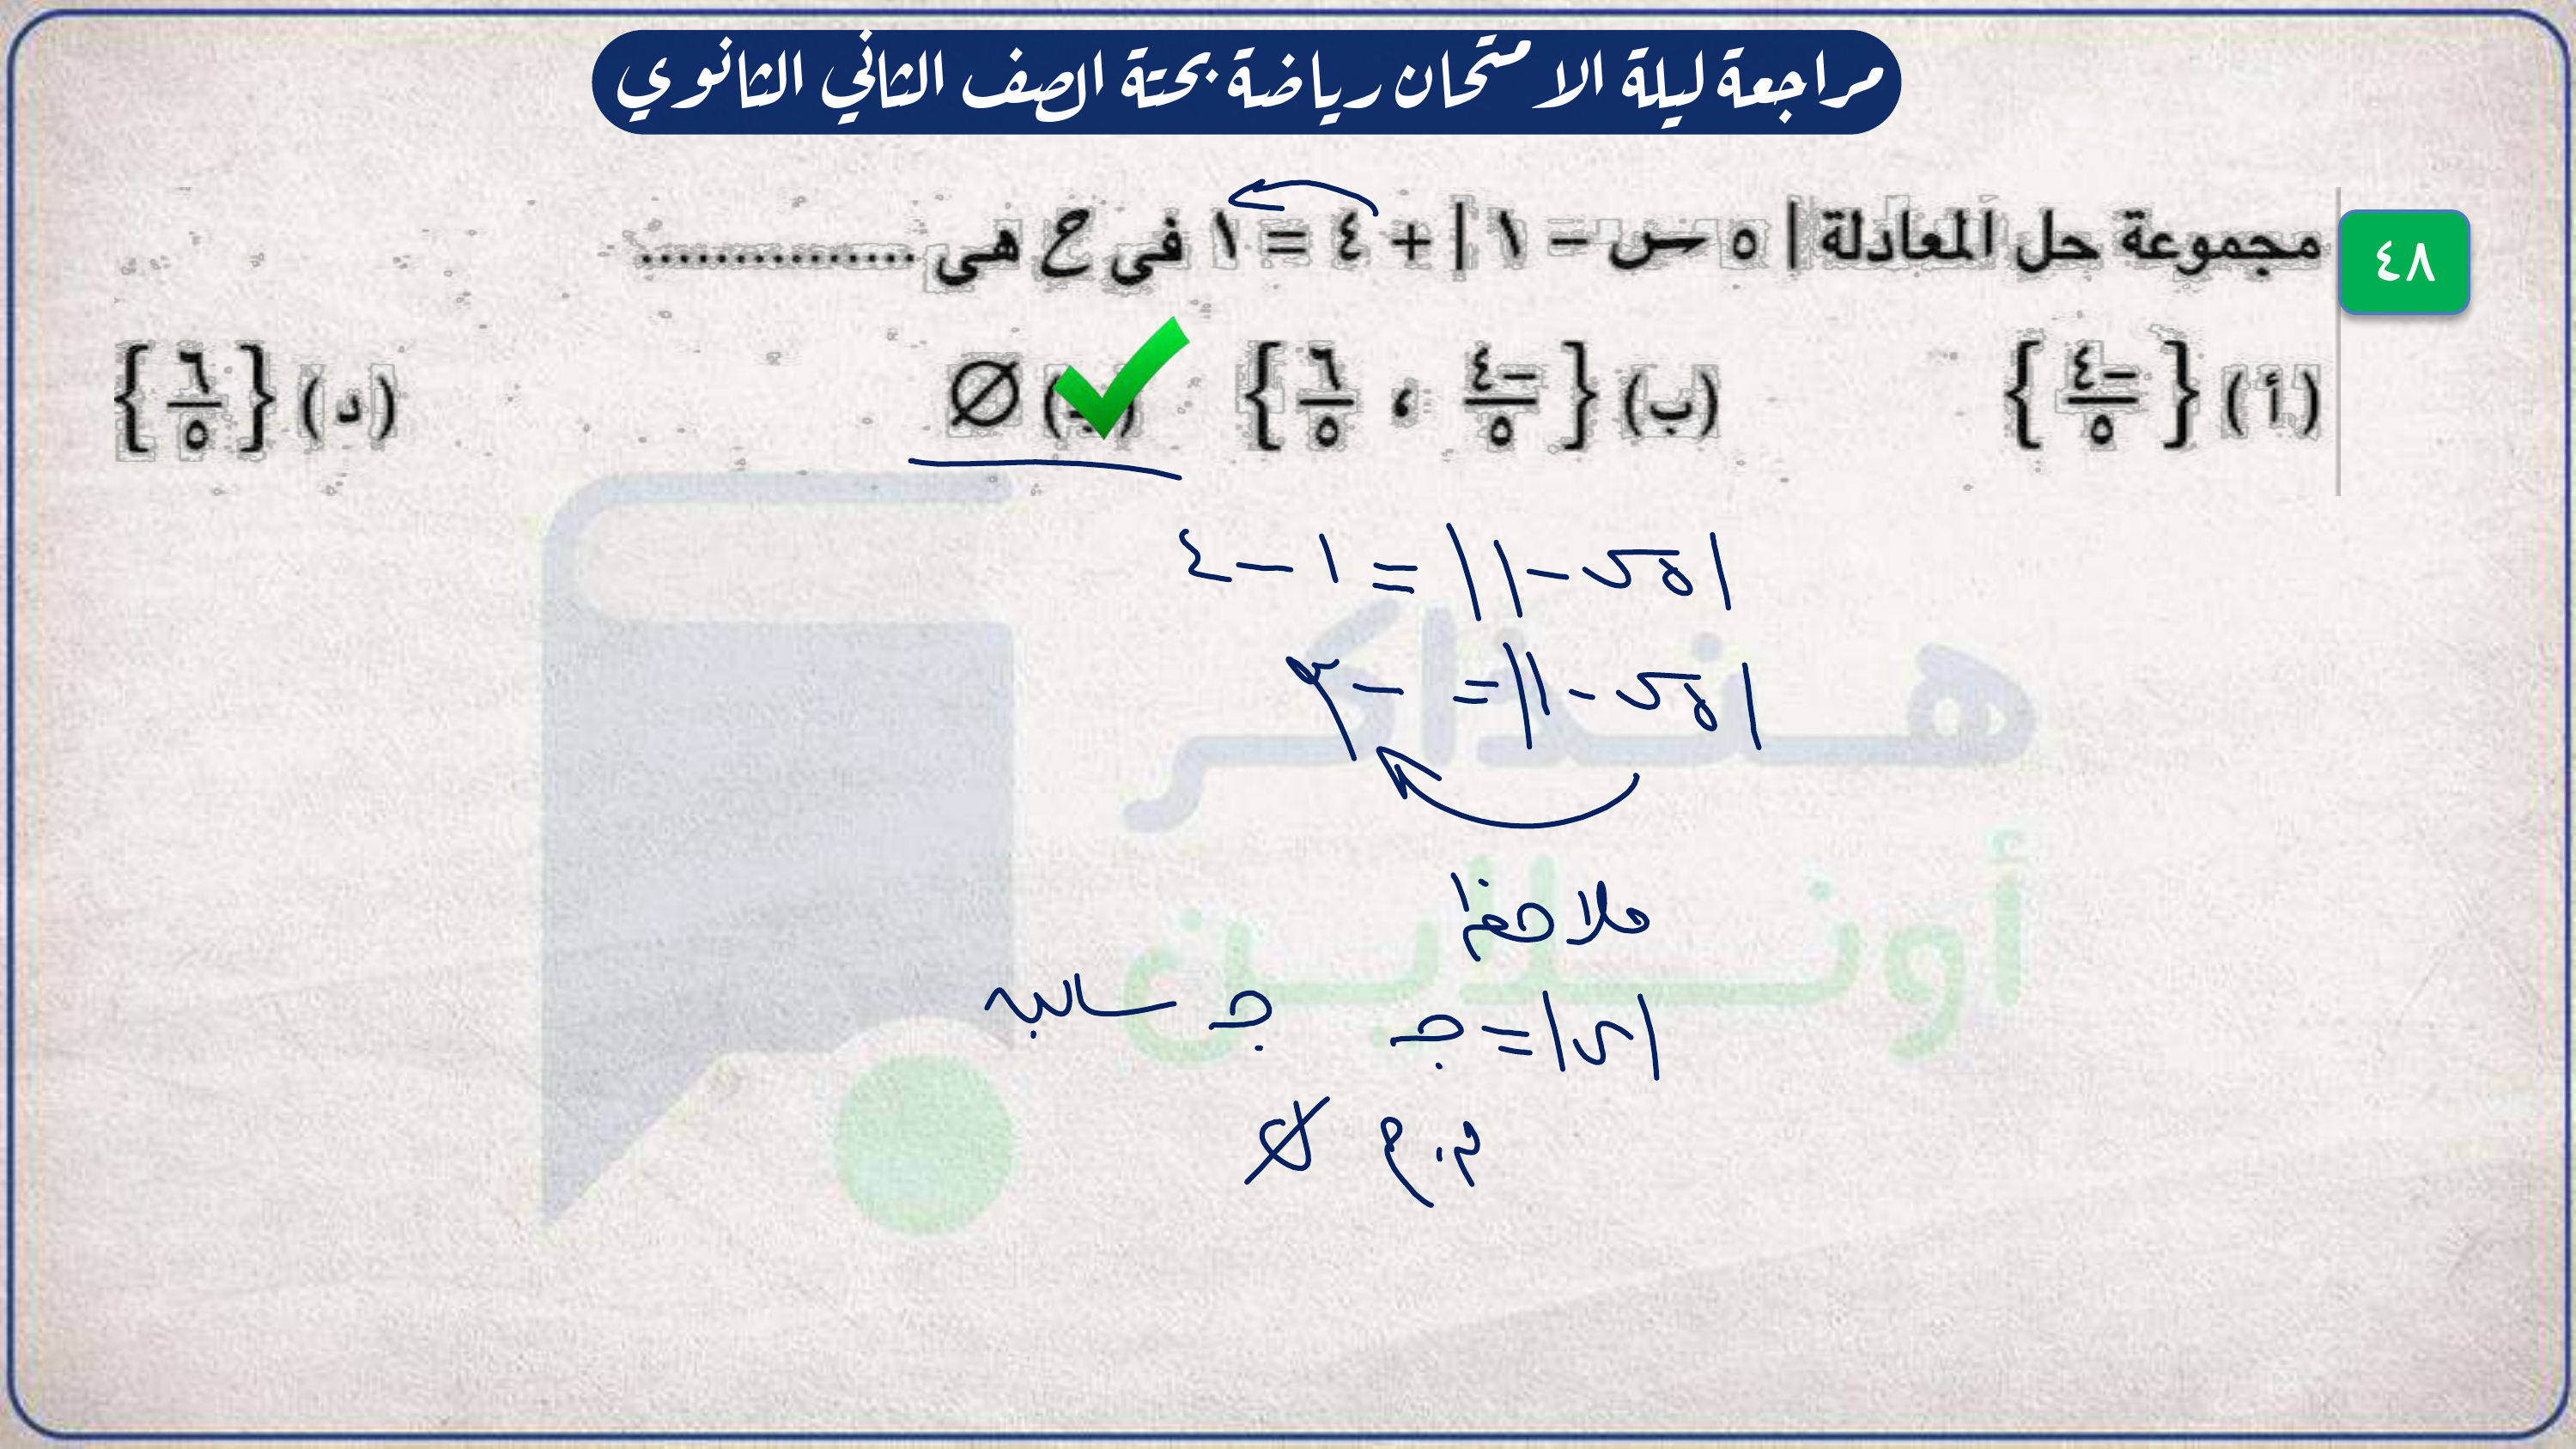 مراجعة ليلة الامتحان رياضة بحتة الصف الثاني الثانوي
٤٨
مجموعة حل المعادلة | ٥ س − ١ | + ٤ = ١ فى ح هى ...............
(أ) {−٤/٥} (ب) {−٤/٥ ، ٦/٥} (جـ) ∅ (د) {٦/٥}
|٥س − ١| = ١ − ٤
|٥س − ١| = −٣
ملاحظة
|س| = جـ جـ سالبه
م.ح ∅
هنذاكر
أونلاين